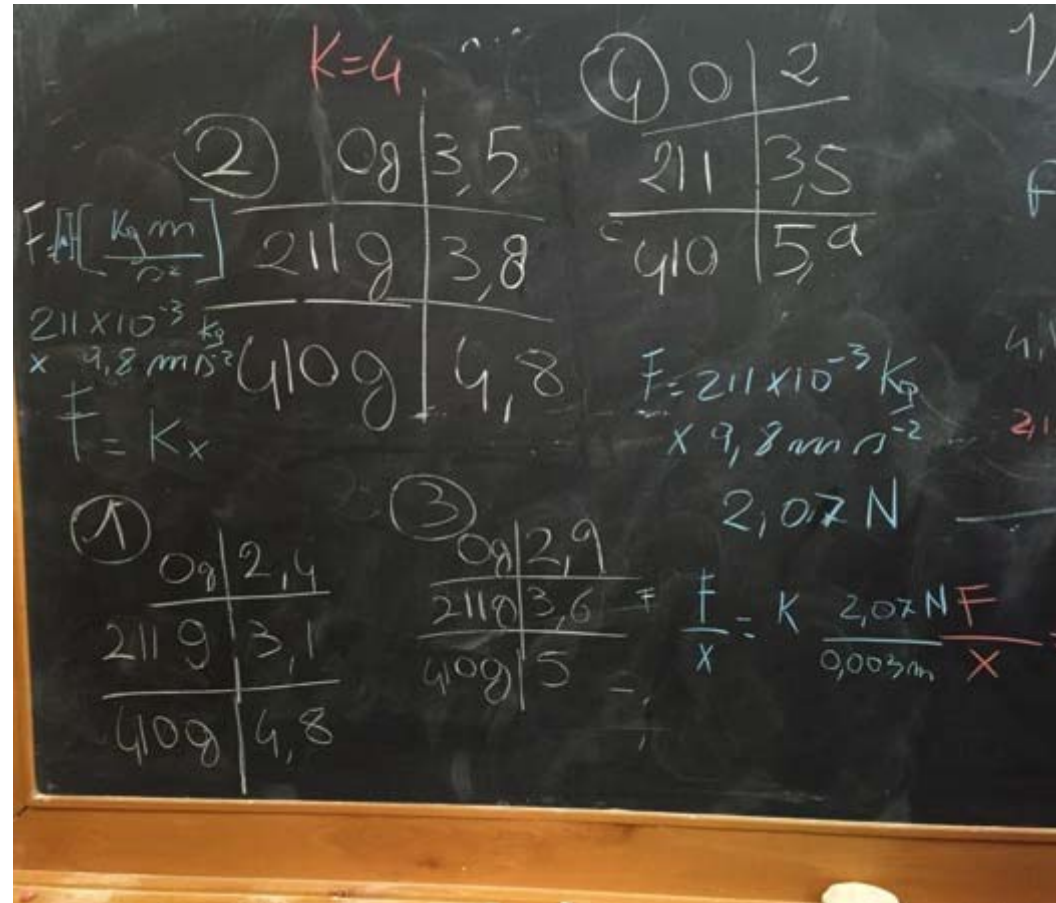 K=4
② 0g | 3,5
211g | 3,8
410g | 4,8
④ 0 | 2
211 | 3,5
410 | 5,9
1)
F= [kg m / s²]
211×10⁻³ kg
x 9,8 m s⁻²
F = Kx
F= 211×10⁻³ kg
x 9,8 m s⁻²
2,07 N
① 0g | 2,4
211g | 3,1
410g | 4,8
③ 0g | 2,9
211g | 3,6
410g | 5
F/x = K 2,07N/0,003m F/x =